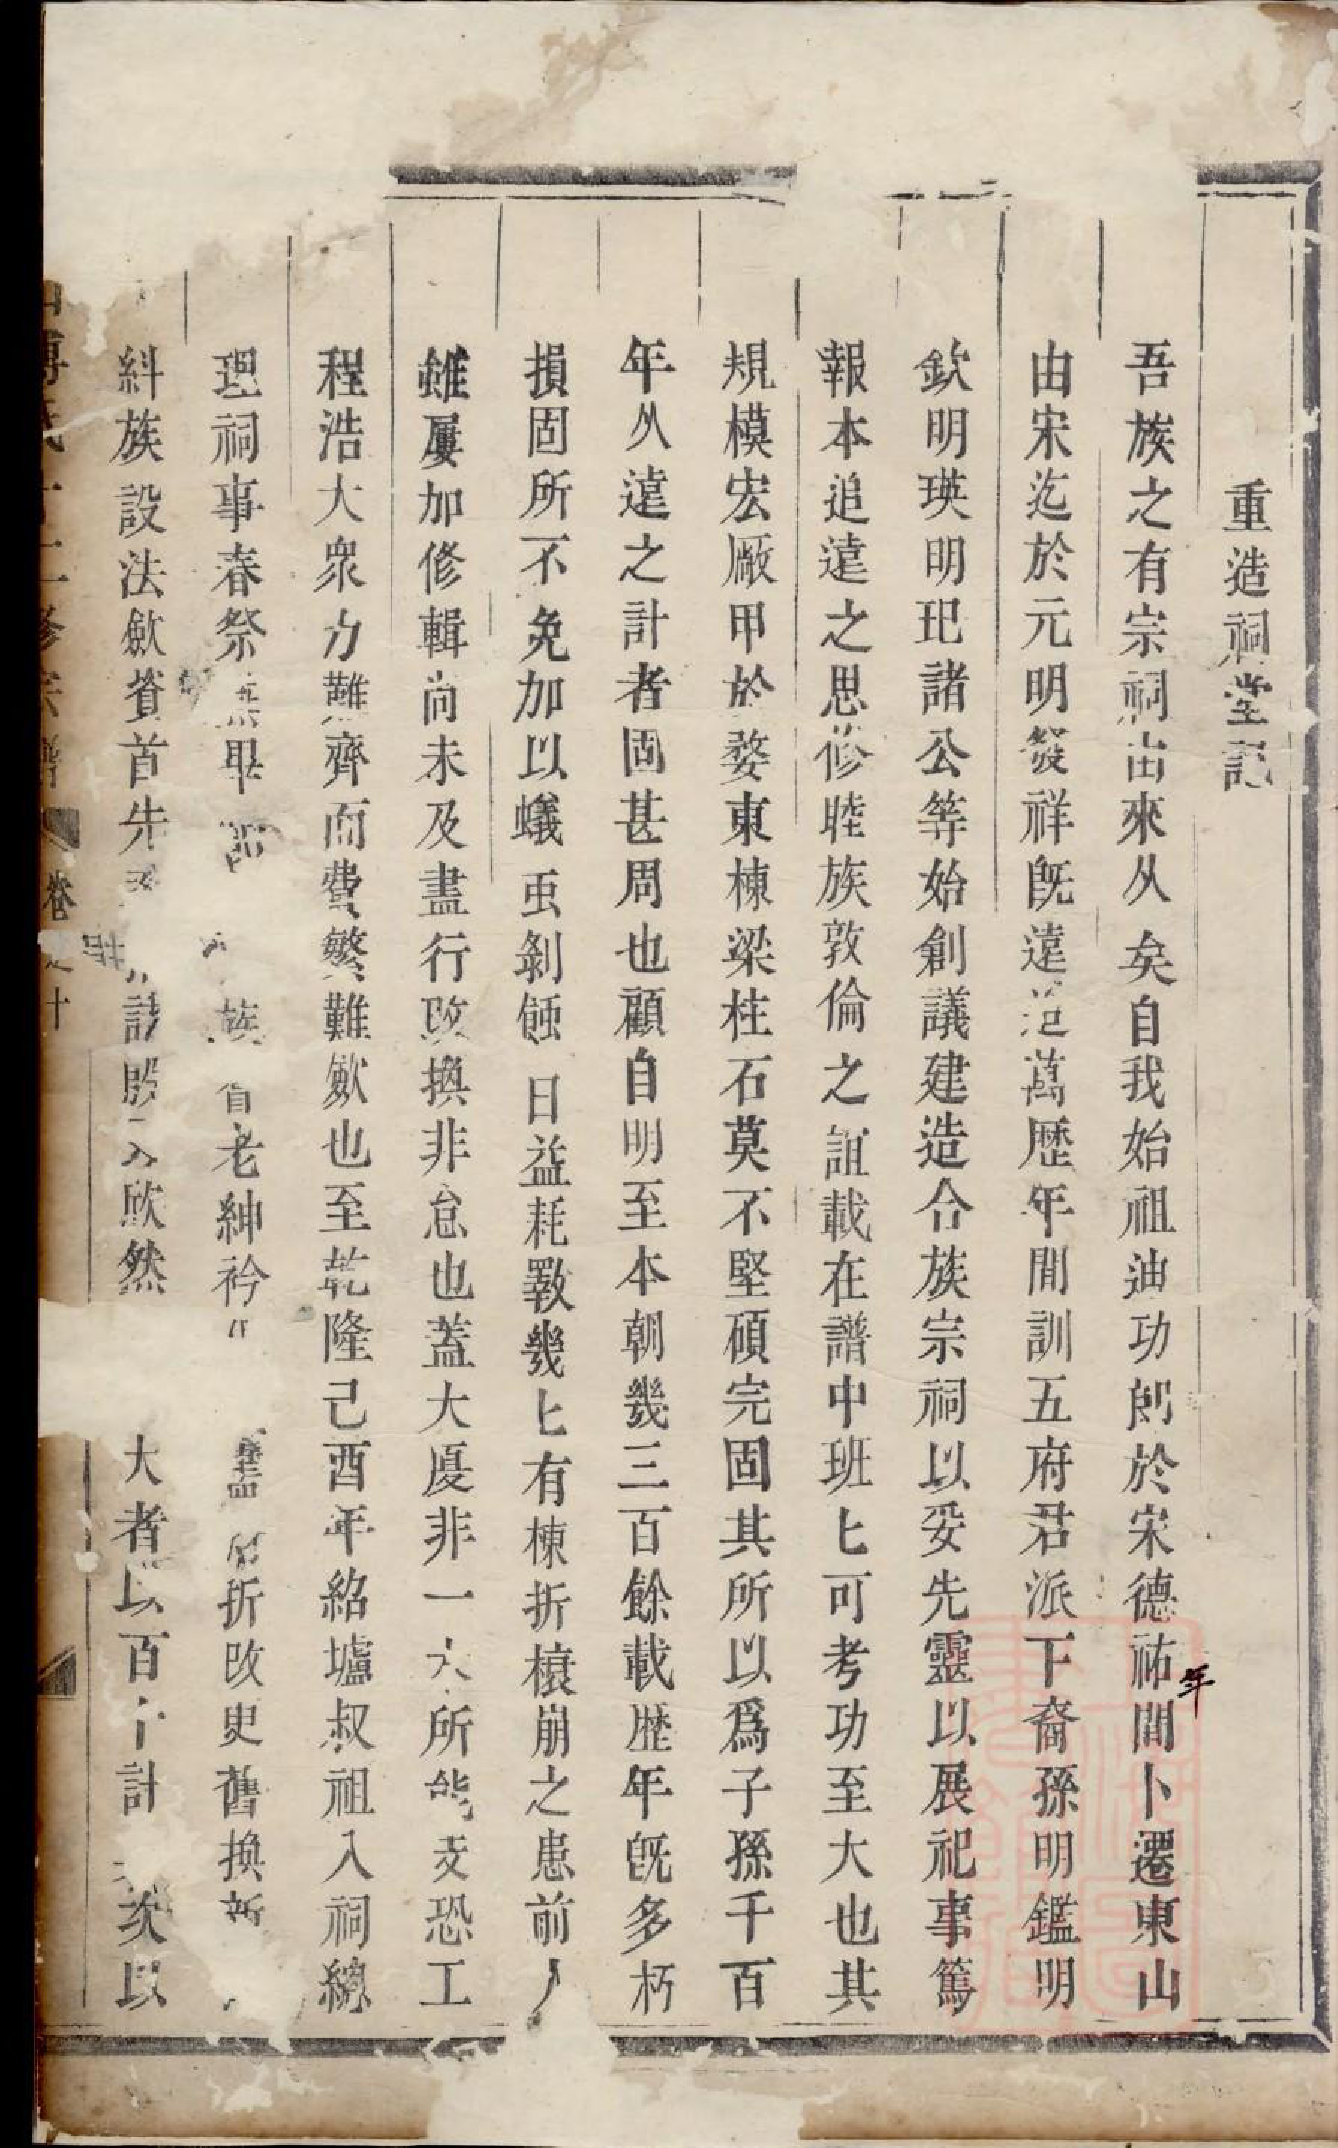 重造祠堂記
吾族之有宗祠由來从矣自我始祖迪功郎於宋德祐間卜遷東山
年
由宋迄於元明發祥旣遠迨萬歷年間訓五府君派下裔孫明鑑明
欽明瑛明玘諸公等始創議建造合族宗祠以妥先靈以展祀事篤
報本追遠之思修睦族敦倫之誼載在譜中班匕可考功至大也其
規模宏廠甲於婺東棟梁柱石莫不堅碩完固其所以爲子孫千百
年从遠之計者固甚周也顧自明至本朝幾三百餘載歷年旣多朽
損固所不免加以蟻虫剝蝕日益耗斁幾匕有棟折榱崩之患前人
雖屢加修輯尚未及盡行改換非怠也蓋大廈非一木所能支恐工
程浩大衆力難齊而費繁難斂也至乾隆己酉年紹墟叔祖入祠總
理祠事春祭畢 族 老紳衿 盡 折改更舊換新
糾族設法斂貲首先 欣然 大者以百十計 次以
傅氏 修宗譜 卷 十